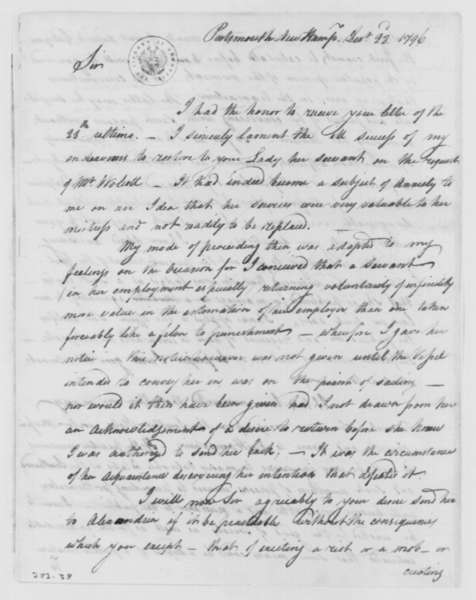 Portsmouth New Hamp. Decr 22d 1796
Sir
I had the honor to receive your letter of the
28th ultimo. — I sincerely Lament the ill success of my
endeavours to restore to your Lady her servant on the request
of Mr Wolcott — It had indeed become a subject of Anxiety to
me on an Idea that her services were very valuable to her
mistress and not readily to be replaced.
My mode of proceeding then was adapted to my
feelings on the Occasion for I conceived that a Servant
in her employment especially returning voluntarily of infinitely
more value in the estimation of her employer than one taken
forceably like a felon to punishment — wherefore I gave her
notice This was not given until the Vessel
intended to convey her in was on the point of sailing —
nor would it then have been given had I not drawn from her
an Acknowledgement of a desire to return before she knew
I was authorized to send her back, — It was the circumstance
of her Acquaintance discovering her intention that defeated it
I will now Sir agreeably to your desire send her
to Alexandria if it be practicable without the consequences
which you except — that of exciting a riot or a mob — or
creating